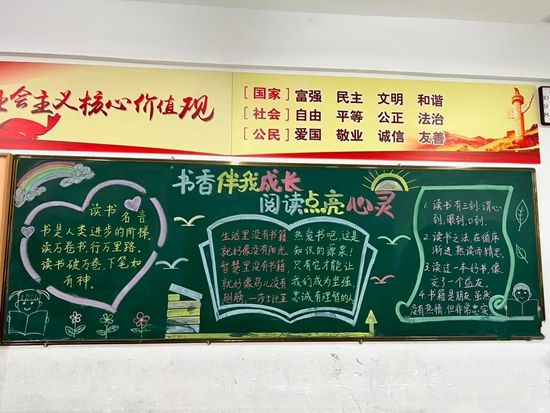 社会主义核心价值观
[国家] 富强 民主 文明 和谐
[社会] 自由 平等 公正 法治
[公民] 爱国 敬业 诚信 友善
书香伴我成长
阅读点亮心灵
读书名言
书是人类进步的阶梯.
读万卷书,行万里路.
读书破万卷,下笔如
有神.
生活里没有书籍
就好像没有阳光,
智慧里没有书籍,
就好像鸟儿没有
翅膀.—莎士比亚
热爱书吧,这是
知识的源泉!
只有它才能让
我们成为坚强、
忠诚有理智的人
1. 读书有三到:谓心
到,眼到,口到.
2. 读书之法,在循序
渐进,熟读而精思.
3. 读过一本好书,像
交了一个益友.
4. 书籍是朋友,虽然
没有热情,但非常忠实